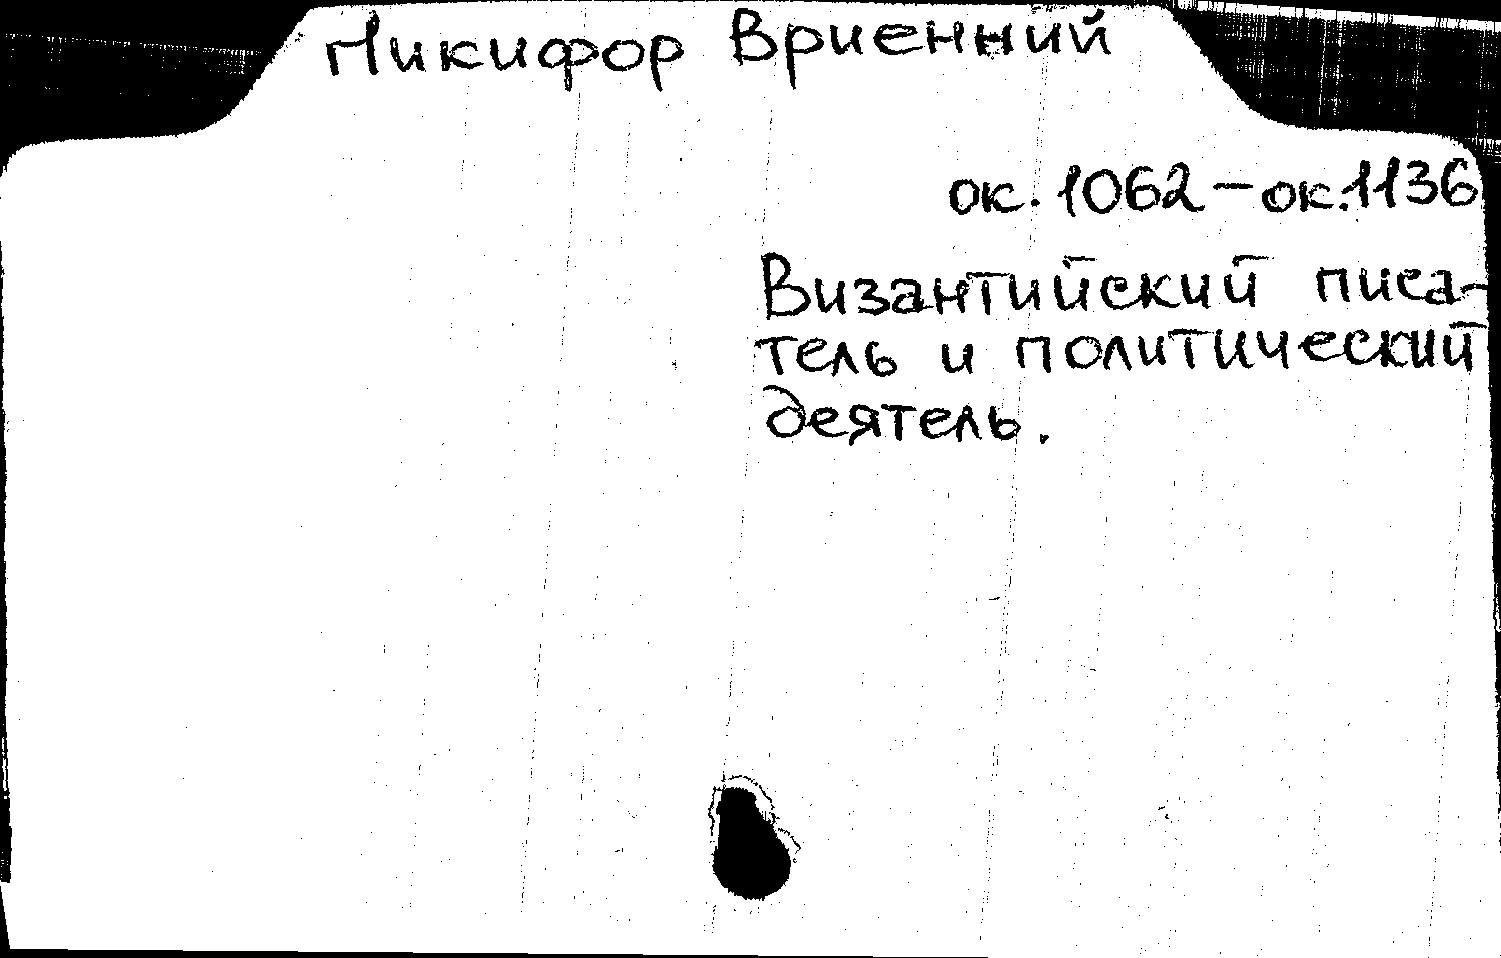 Никифор Вриенний
ок. 1062 – ок. 1136
Византийский писа-
тель и политический
деятель.